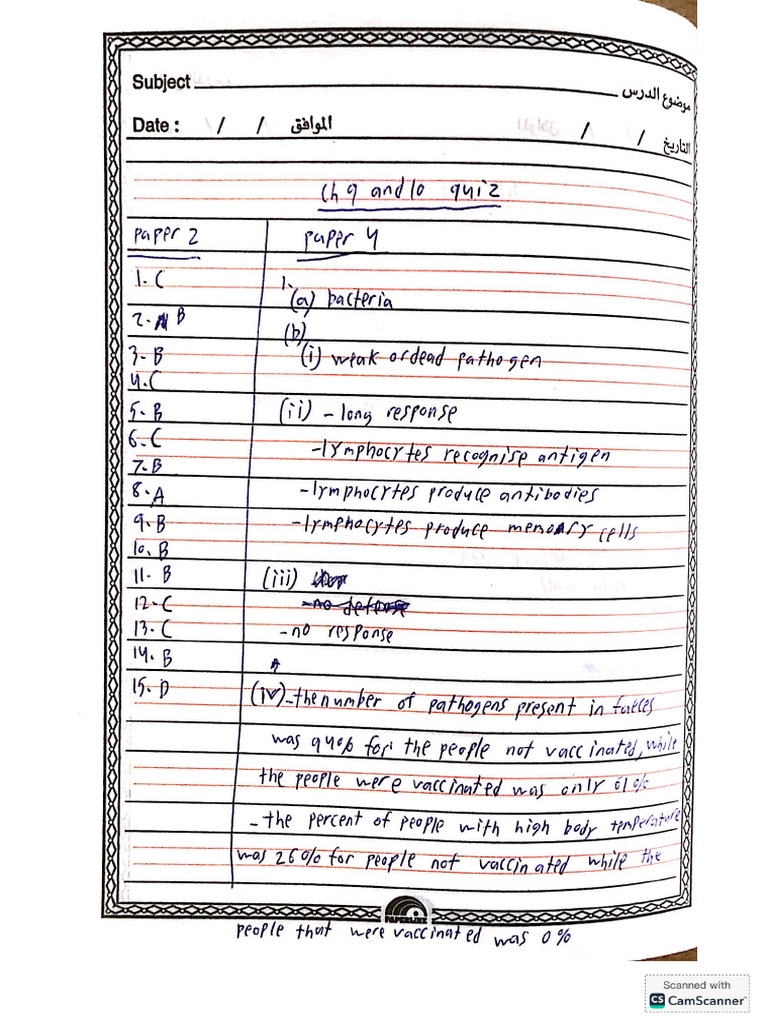 Subject موضوع الدرس
Date : / / الموافق / / التاريخ
Ch 9 and 10 quiz
paper 2 paper 4
1. C 1.
(a) bacteria
2. B (b)
3. B (i) weak or dead pathogen
4. C
5. B (ii) - long response
6. C - lymphocytes recognise antigen
7. B
8. A - lymphocytes produce antibodies
9. B - lymphocytes produce memory cells
10. B
11. B (iii)
12. C - no defense
13. C - no response
14. B
15. D (iv) - the number of pathogens present in faeces
was 940% for the people not vaccinated, while
the people were vaccinated was only 61%
- the percent of people with high body temperature
was 26% for people not vaccinated while the
PAPERLINE
people that were vaccinated was 0%
Scanned with
CS CamScanner